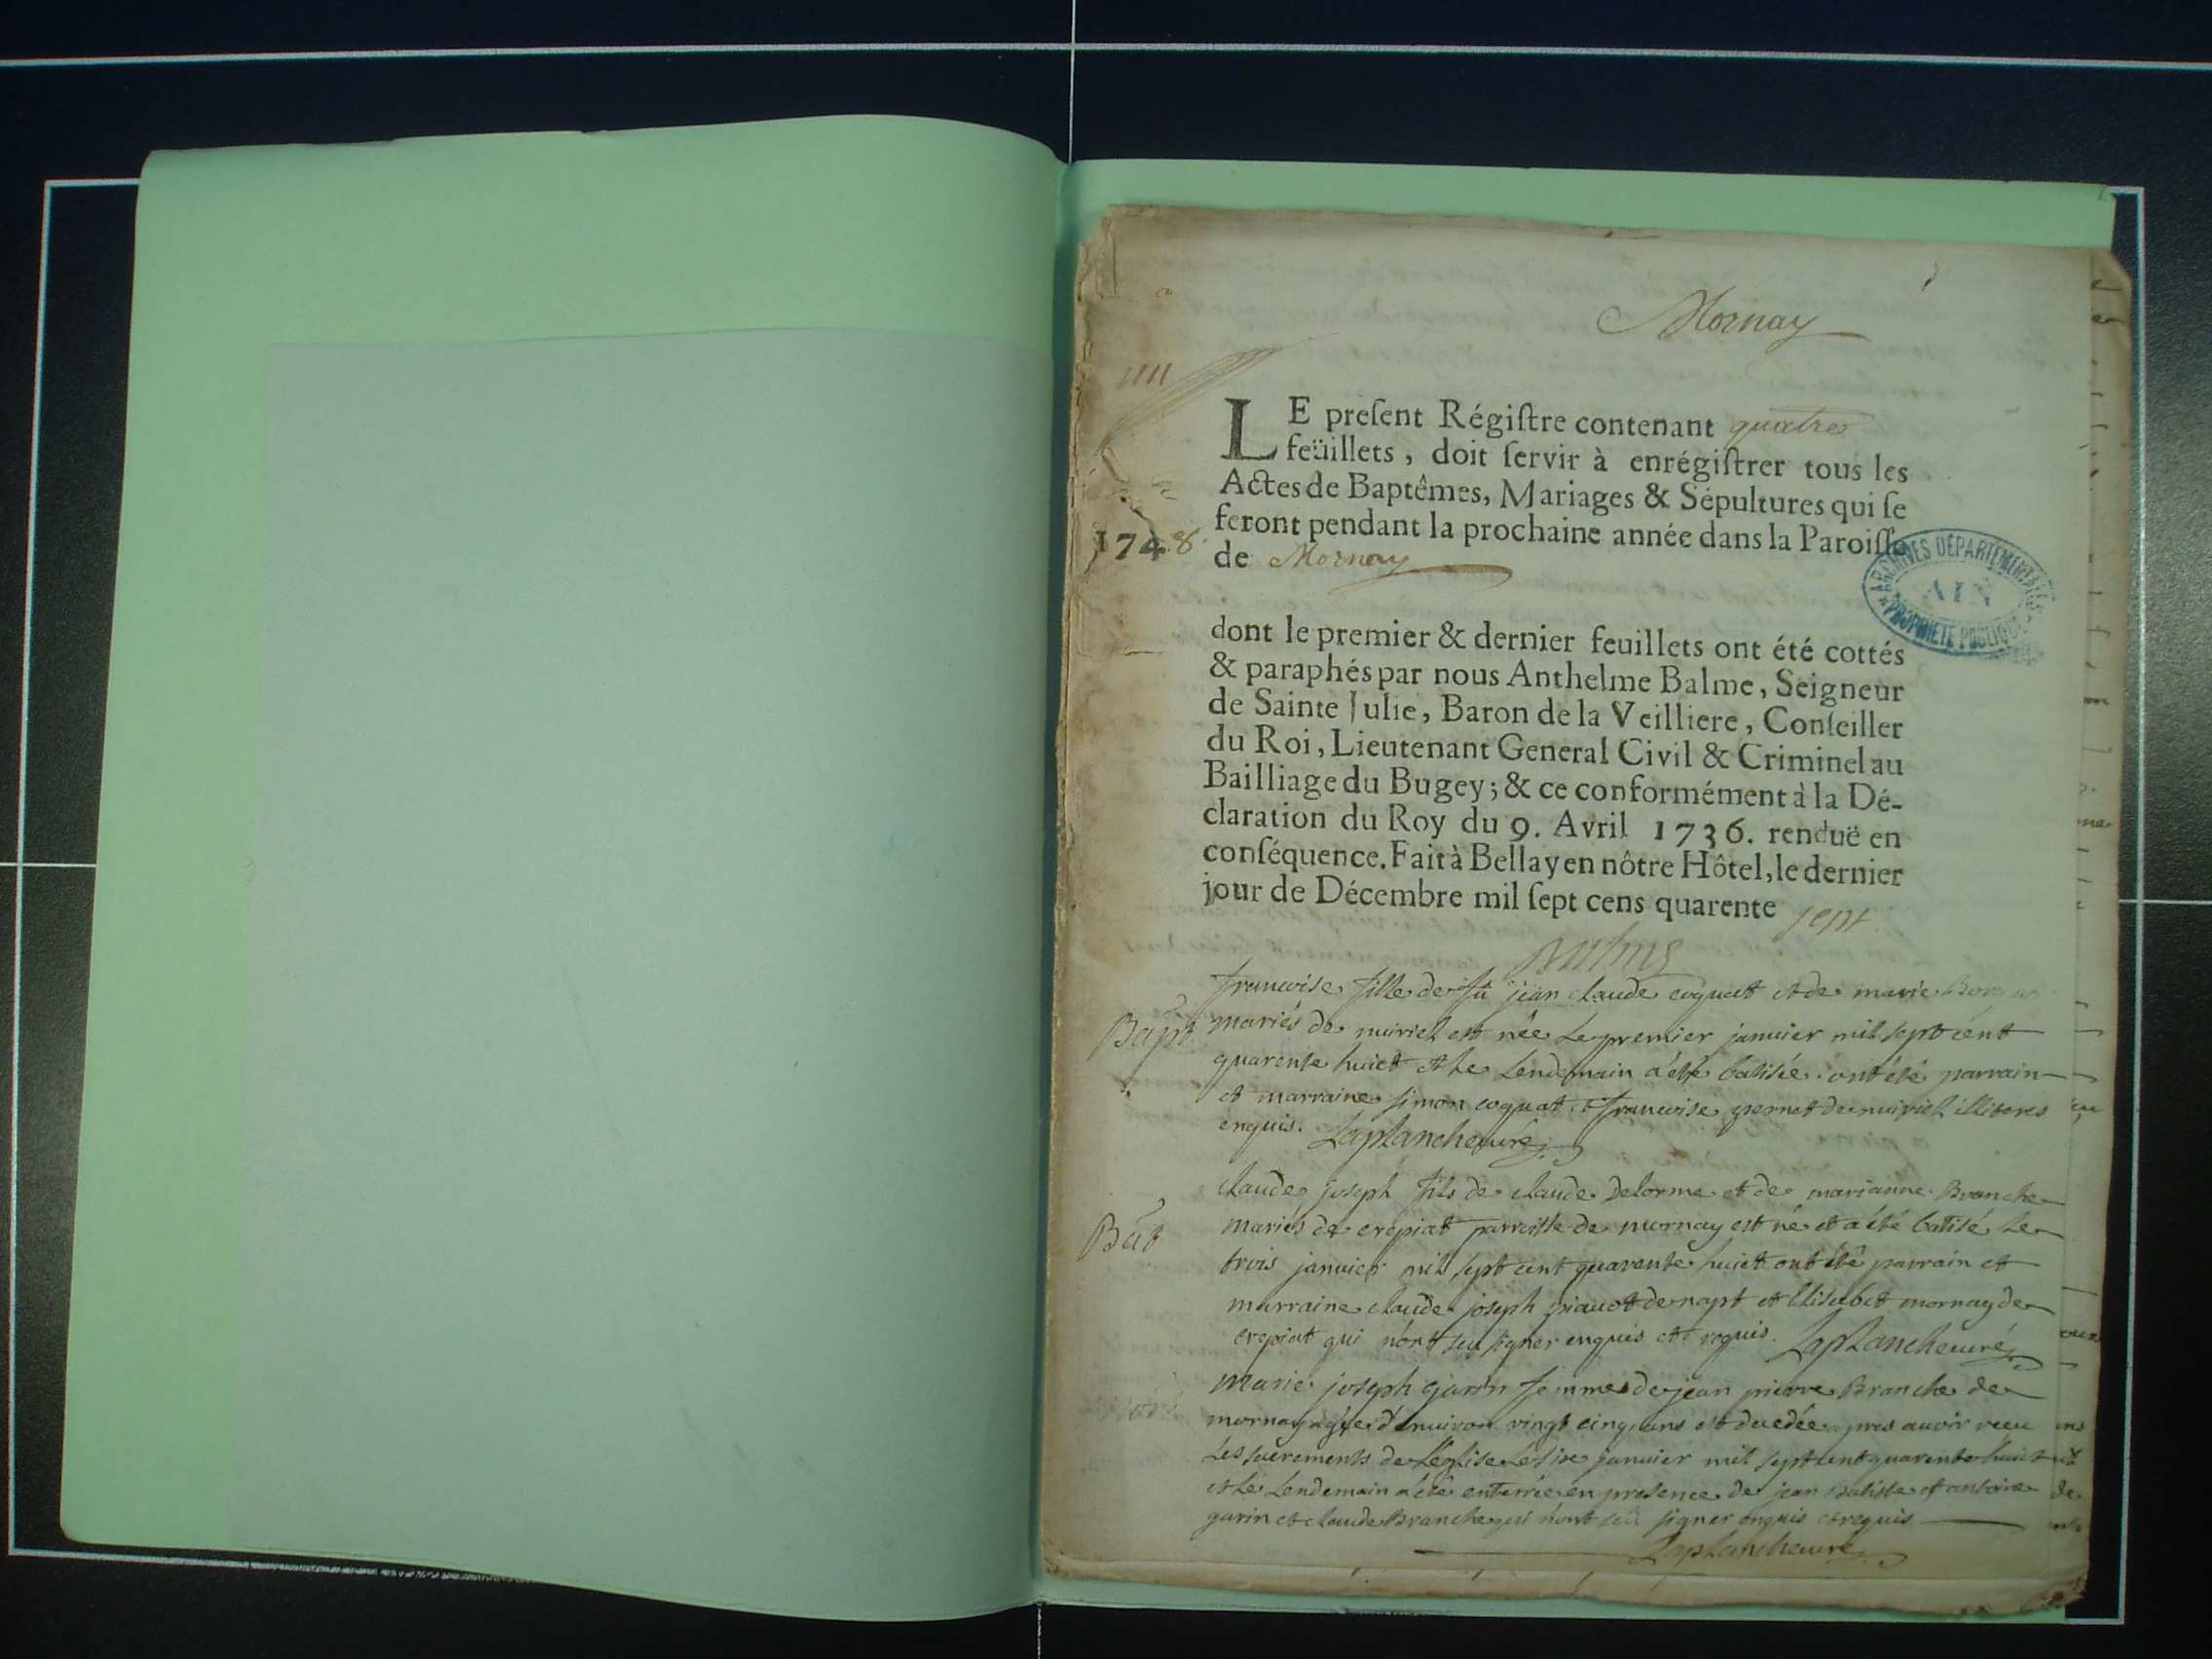 Mornay
LE preſent Régiſtre contenant quatre
feüillets, doit ſervir à enrégiſtrer tous les
Actes de Baptêmes, Mariages & Sépultures qui ſe
feront pendant la prochaine année dans la Paroiſſe
1748
de Mornay
ARCHIVES DÉPARTEMENTALES
AIN
PROPRIÉTÉ PUBLIQUE
dont le premier & dernier feuillets ont été cottés
& paraphés par nous Anthelme Balme, Seigneur
de Sainte Julie, Baron de la Veilliere, Conſeiller
du Roi, Lieutenant General Civil & Criminel au
Bailliage du Bugey; & ce conformément à la Dé-
claration du Roy du 9. Avril 1736. renduë en
conſéquence. Fait à Bellay en nôtre Hôtel, le dernier
jour de Décembre mil ſept cens quarente sept
Balme
francoise fille de fû jean claude coquat et de marie
Bapt
mariés de nuiriel est née le premier janvier mil sept cent
quarente huict et le lendemain a été batisée. ont été parrain
et marraine simon coquat et francoise pernet de nuiriel illiteres
enquis. Laplanche curé
claude joseph fils de claude Delorme et de marianne Branche
Bat
mariés de crepiat parroisse de mornay est né et a été batisé le
trois janvier mil sept cent quarente huict ont été parrain et
marraine claude joseph piauot de napt et Elisabet mornay de
crepiat qui n'ont seu signer enquis et requis. Laplanche curé
marie joseph garin femme de jean pierre Branche de
mornay agée d'enuiron vingt cinq ans est decedée pres auoir receu
les sacrements de L'eglise le six janvier mil sept cent quarente huict
et le Lendemain a été enterrée en presence de jean Batiste et antoine
garin et claude Branche qui n'ont seu signer enquis et requis
Laplanche curé